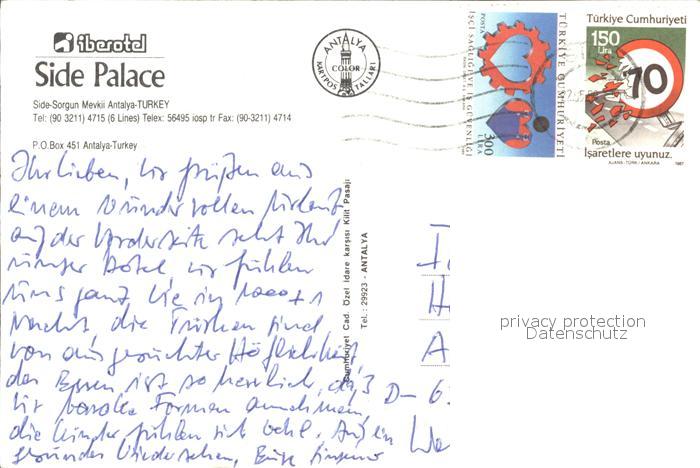 iberotel
Side Palace
Side-Sorgun Mevkii Antalya-TURKEY
Tel: (90-3211) 4715 (6 Lines) Telex: 56495 iosp tr Fax: (90-3211) 4714
P.O.Box 451 Antalya-Turkey
ANTALYA
COLOR
KARTPOSTALLARI
TÜRKİYE CUMHURİYETİ
İŞÇİ SAĞLIĞI VE İŞ GÜVENLİĞİ
POSTA
300
LİRA
Türkiye Cumhuriyeti
150
Lira
70
Posta
İşaretlere uyunuz.
AJANS-TÜRK/ANKARA 1987
Ihr Lieben, wir grüßen aus
einem wundervollen Urlaub
auf der Vorderseite seht Ihr
unser Hotel, wir fühlen
uns ganz wie in 1000 + 1
Nacht, die Türken sind
von ausgesuchter Höflichkeit,
das Essen ist so herrlich, daß
wir barocke Formen annehmen,
die Kinder fühlen sich wohl. Auf ein
gesundes Wiedersehen, Eure
Cumhuriyet Cad. Özel İdare karşısı Kilit Pasajı
Tel.: 29923 - ANTALYA
H
A
D- 6
We
privacy protection
Datenschutz